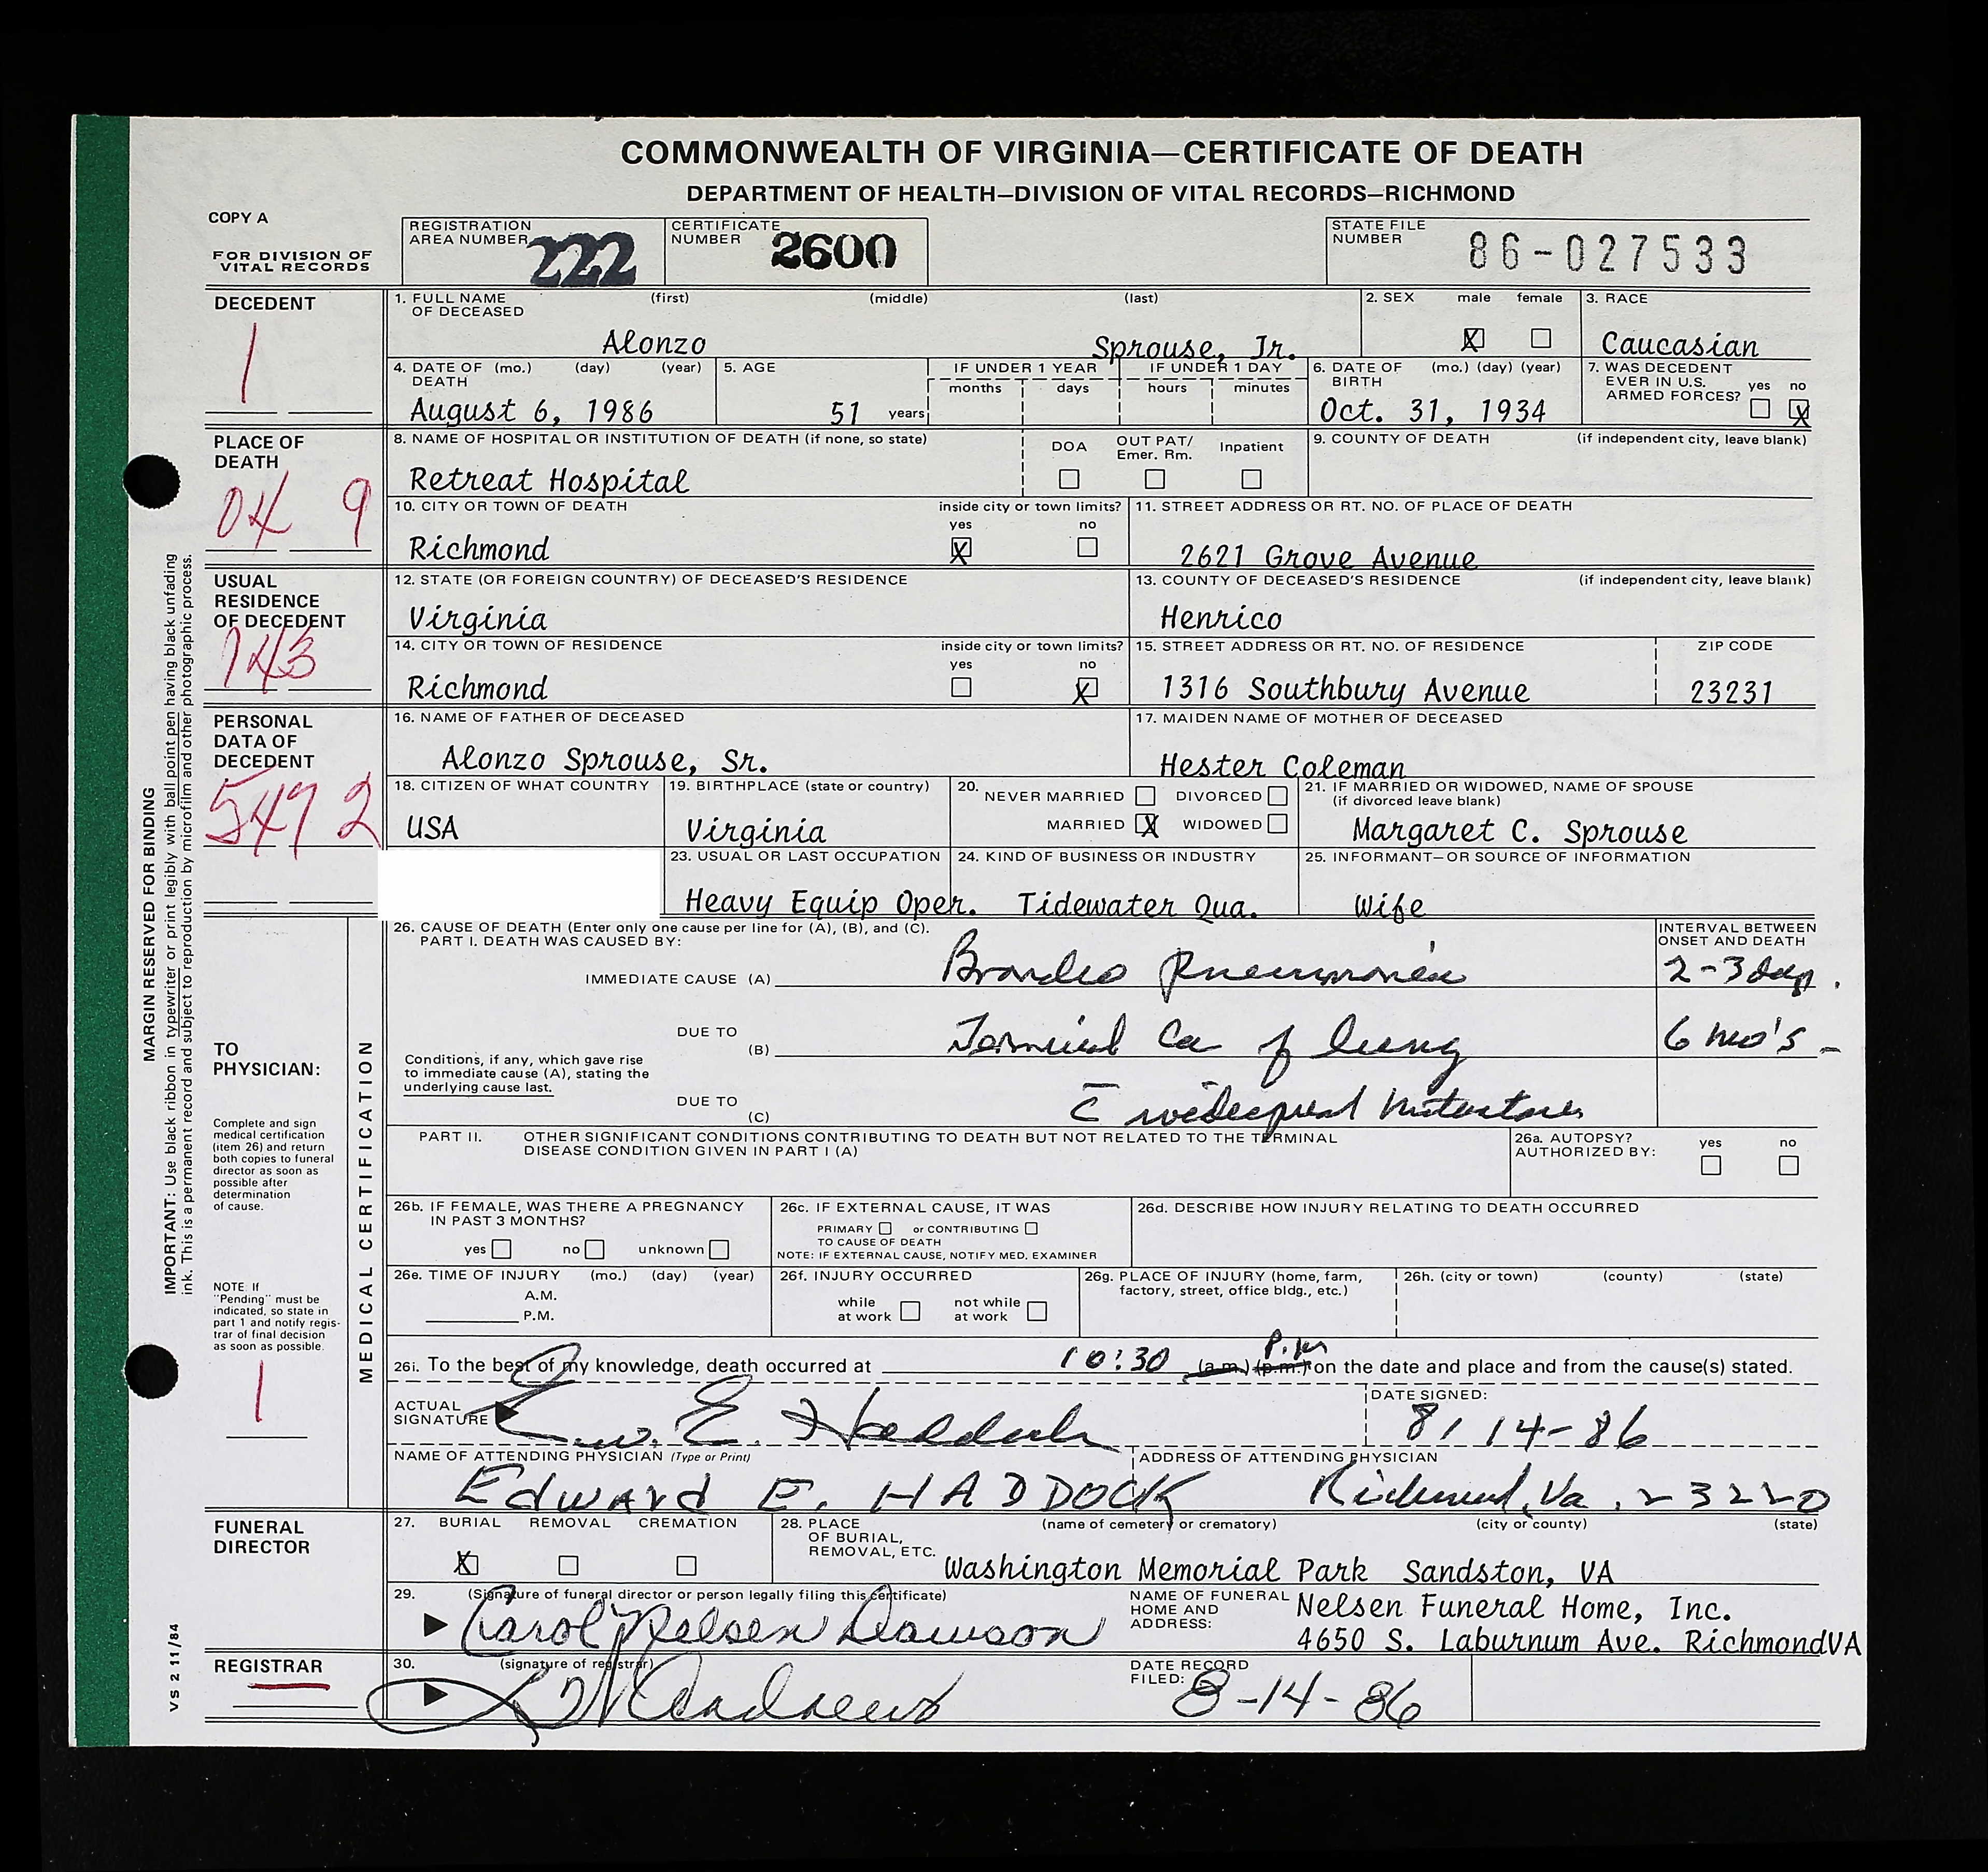 COMMONWEALTH OF VIRGINIA—CERTIFICATE OF DEATH
DEPARTMENT OF HEALTH—DIVISION OF VITAL RECORDS—RICHMOND
COPY A
FOR DIVISION OF
VITAL RECORDS
REGISTRATION
AREA NUMBER 222
CERTIFICATE
NUMBER 2600
STATE FILE
NUMBER 86-027533
DECEDENT
1
1. FULL NAME OF DECEASED (first) (middle) (last)
Alonzo Sprouse, Jr.
2. SEX male female
X
3. RACE
Caucasian
4. DATE OF DEATH (mo.) (day) (year)
August 6, 1986
5. AGE
51 years
IF UNDER 1 YEAR
months days
IF UNDER 1 DAY
hours minutes
6. DATE OF BIRTH (mo.) (day) (year)
Oct. 31, 1934
7. WAS DECEDENT
EVER IN U.S.
ARMED FORCES? yes no
X
PLACE OF
DEATH
04 9
8. NAME OF HOSPITAL OR INSTITUTION OF DEATH (if none, so state)
Retreat Hospital
DOA OUT PAT/ Emer. Rm. Inpatient
9. COUNTY OF DEATH (if independent city, leave blank)
10. CITY OR TOWN OF DEATH inside city or town limits?
yes no
Richmond X
11. STREET ADDRESS OR RT. NO. OF PLACE OF DEATH
2621 Grove Avenue
USUAL
RESIDENCE
OF DECEDENT
143
12. STATE (OR FOREIGN COUNTRY) OF DECEASED'S RESIDENCE
Virginia
13. COUNTY OF DECEASED'S RESIDENCE (if independent city, leave blank)
Henrico
14. CITY OR TOWN OF RESIDENCE inside city or town limits?
yes no
Richmond X
15. STREET ADDRESS OR RT. NO. OF RESIDENCE ZIP CODE
1316 Southbury Avenue 23231
PERSONAL
DATA OF
DECEDENT
5472
16. NAME OF FATHER OF DECEASED
Alonzo Sprouse, Sr.
17. MAIDEN NAME OF MOTHER OF DECEASED
Hester Coleman
18. CITIZEN OF WHAT COUNTRY
USA
19. BIRTHPLACE (state or country)
Virginia
20. NEVER MARRIED DIVORCED
MARRIED X WIDOWED
21. IF MARRIED OR WIDOWED, NAME OF SPOUSE
(if divorced leave blank)
Margaret C. Sprouse
23. USUAL OR LAST OCCUPATION
Heavy Equip Oper.
24. KIND OF BUSINESS OR INDUSTRY
Tidewater Qua.
25. INFORMANT—OR SOURCE OF INFORMATION
Wife
MARGIN RESERVED FOR BINDING
IMPORTANT: Use black ribbon in typewriter or print legibly with ball point pen having black unfading
ink. This is a permanent record and subject to reproduction by microfilm and other photographic process.
TO
PHYSICIAN:
Complete and sign
medical certification
(item 26) and return
both copies to funeral
director as soon as
possible after
determination
of cause.
NOTE: If
"Pending" must be
indicated, so state in
part 1 and notify regis-
trar of final decision
as soon as possible.
1
MEDICAL CERTIFICATION
26. CAUSE OF DEATH (Enter only one cause per line for (A), (B), and (C).
PART I. DEATH WAS CAUSED BY:
INTERVAL BETWEEN
ONSET AND DEATH
IMMEDIATE CAUSE (A) Broncho Pneumonia 2-3 days.
DUE TO
(B) Terminal Ca of lung 6 mo's -
Conditions, if any, which gave rise
to immediate cause (A), stating the
underlying cause last.
DUE TO
(C) c̄ widespread Metastases
PART II. OTHER SIGNIFICANT CONDITIONS CONTRIBUTING TO DEATH BUT NOT RELATED TO THE TERMINAL
DISEASE CONDITION GIVEN IN PART I (A)
26a. AUTOPSY?
AUTHORIZED BY: yes no
26b. IF FEMALE, WAS THERE A PREGNANCY
IN PAST 3 MONTHS?
yes no unknown
26c. IF EXTERNAL CAUSE, IT WAS
PRIMARY or CONTRIBUTING
TO CAUSE OF DEATH
NOTE: IF EXTERNAL CAUSE, NOTIFY MED. EXAMINER
26d. DESCRIBE HOW INJURY RELATING TO DEATH OCCURRED
26e. TIME OF INJURY (mo.) (day) (year)
A.M.
P.M.
26f. INJURY OCCURRED
while at work not while at work
26g. PLACE OF INJURY (home, farm,
factory, street, office bldg., etc.)
26h. (city or town) (county) (state)
P.M
26i. To the best of my knowledge, death occurred at 10:30 (a.m.) (p.m.) on the date and place and from the cause(s) stated.
ACTUAL
SIGNATURE Ew. E. Haddock
DATE SIGNED:
8/14-86
NAME OF ATTENDING PHYSICIAN (Type or Print)
Edward E. HADDOCK
ADDRESS OF ATTENDING PHYSICIAN
Richmond, Va. 23220
FUNERAL
DIRECTOR
27. BURIAL REMOVAL CREMATION
X
28. PLACE
OF BURIAL,
REMOVAL, ETC.
(name of cemetery or crematory) (city or county) (state)
Washington Memorial Park Sandston, VA
29. (Signature of funeral director or person legally filing this certificate)
Carol Nelsen Dawson
NAME OF FUNERAL
HOME AND
ADDRESS:
Nelsen Funeral Home, Inc.
4650 S. Laburnum Ave. Richmond VA
REGISTRAR
30. (signature of registrar)
Andrews
DATE RECORD
FILED: 8-14-86
VS 2 11/84